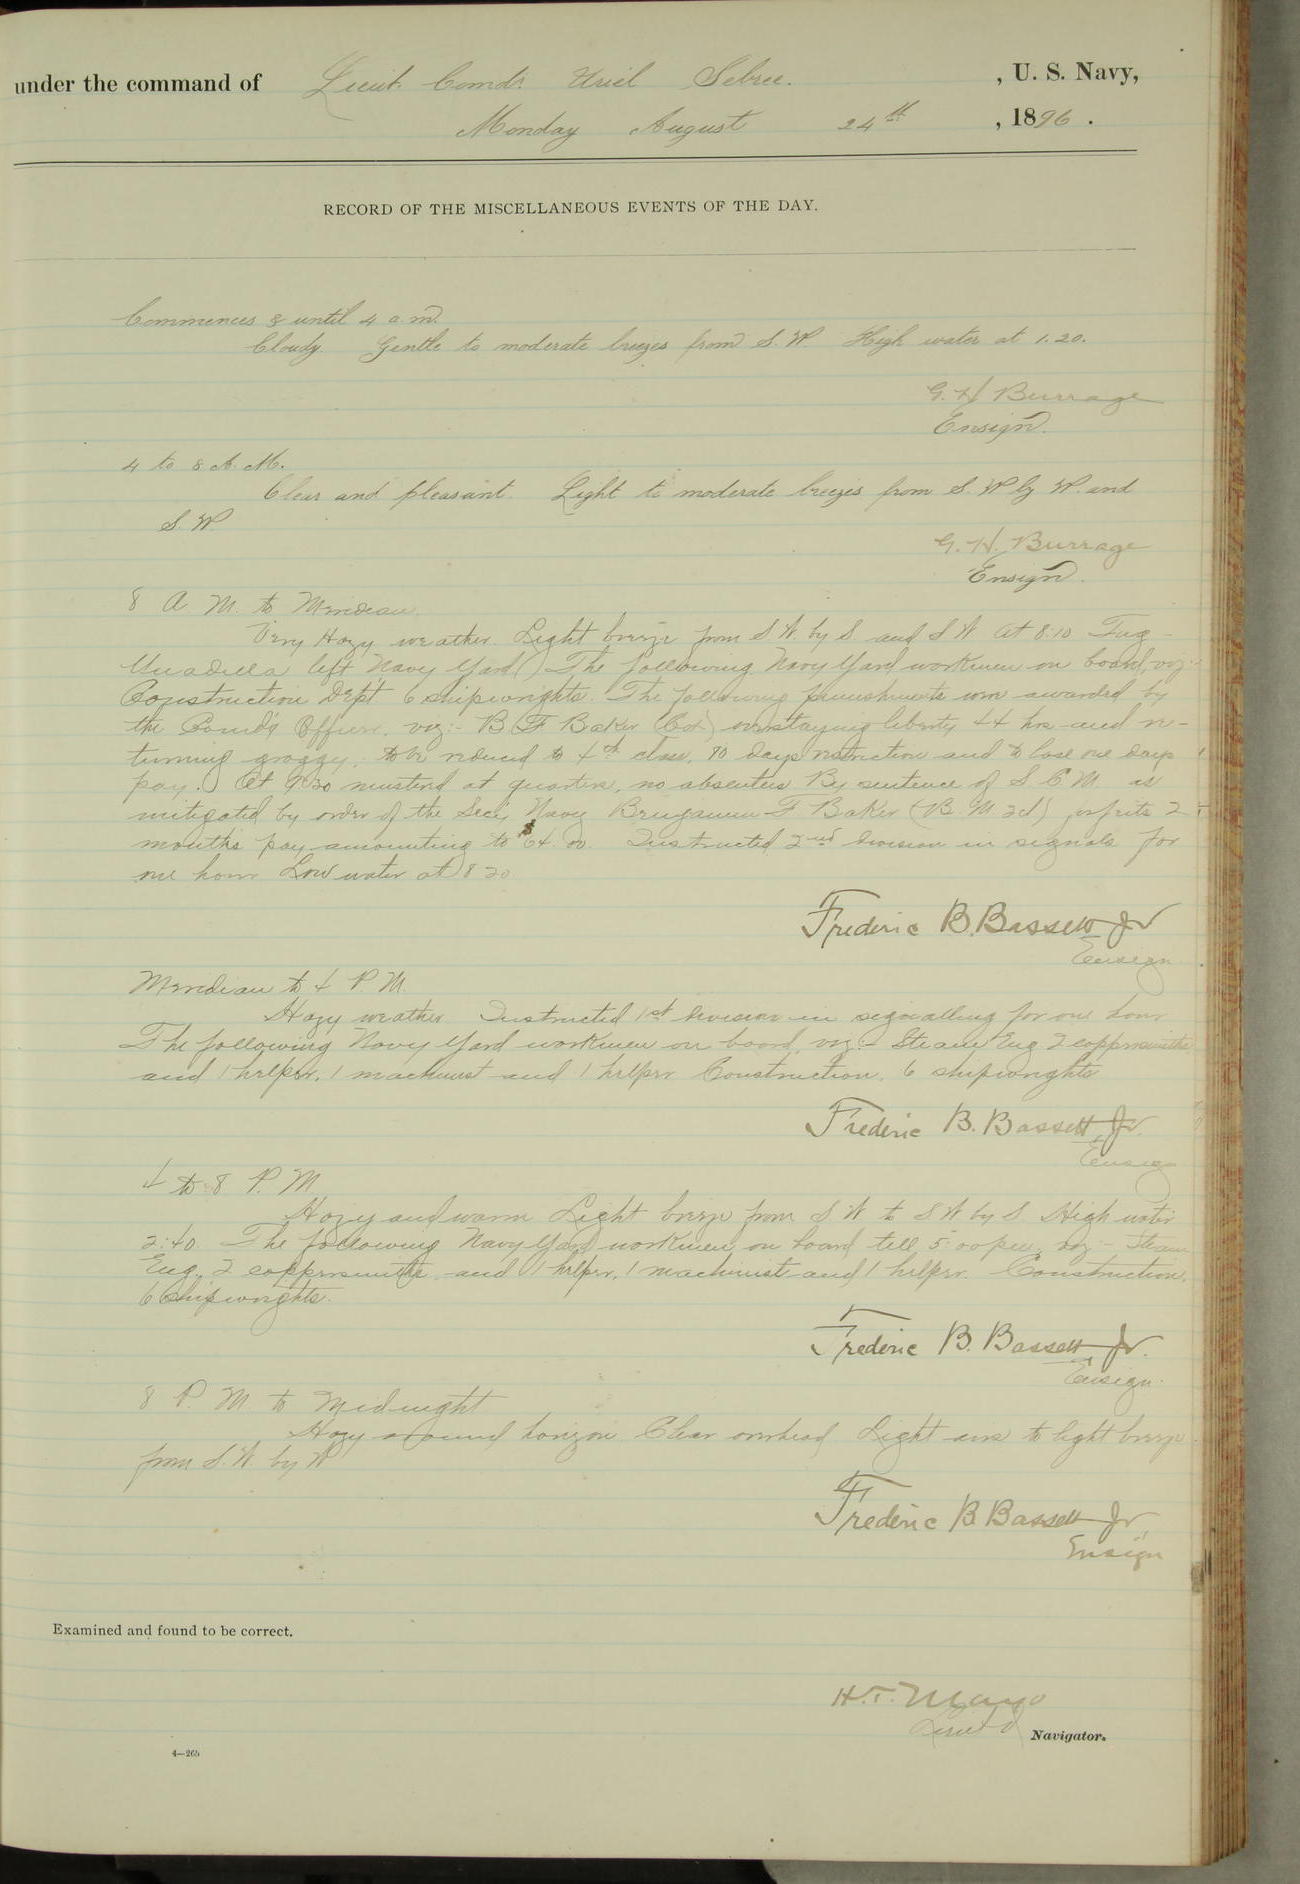 under the command of Lieut. Comdr. Uriel Sebree. , U. S. Navy,
Monday August 24th , 1896 .
RECORD OF THE MISCELLANEOUS EVENTS OF THE DAY.
Commences & until 4 a.m.
Cloudy. Gentle to moderate breezes from S. W. High water at 1.20.
G. H. Burrage
Ensign.
4 to 8 A. M.
Clear and pleasant. Light to moderate breezes from S. W by W. and
S. W.
G. H. Burrage
Ensign.
8 A. M. to Meridian.
Very Hazy weather. Light breeze from S W. by S. and S W. At 8:10 Tug
Unadilla left Navy Yard. The following Navy Yard workmen on board, viz:-
Construction Dep't 6 shipwrights. The following punishments were awarded by
the Comd'g Officer, viz:- B F Baker (Cox) overstaying liberty 44 hrs and re-
turning groggy, to be reduced to 4th class, 90 days restriction and to lose one days
pay. At 9.30 mustered at quarters, no absentees. By sentence of S. C. M. as
mitigated by order of the Sec'y Navy Benjamin F Baker (B. M 2d) forfeits 2
months pay amounting to $64.00. Instructed 2nd Division in signals for
one hour. Low water at 8 20
Frederic B. Bassett Jr
Ensign
Meridian to 4 P. M.
Hazy weather. Instructed 1st Division in signalling for one hour
The following Navy Yard workmen on board, viz:- Steam Eng 2 coppersmiths
and 1 helper, 1 machinist and 1 helper. Construction, 6 shipwrights
Frederic B. Bassett Jr.
Ensign
4 to 8 P. M
Hazy and warm. Light breeze from S W to S W by S. High water
2:40. The following Navy Yard workmen on board till 5:00 pm, viz:- Steam
Eng, 2 coppersmiths and 1 helper, 1 machinist and 1 helper. Construction,
6 Shipwrights.
Frederic B. Bassett Jr.
Ensign.
8 P. M to Midnight
Hazy around horizon. Clear overhead. Light airs to light breeze
from S. W by W
Frederic B Bassett Jr,
Ensign
Examined and found to be correct.
H. T. Mayo
Lieut Navigator.
4—265